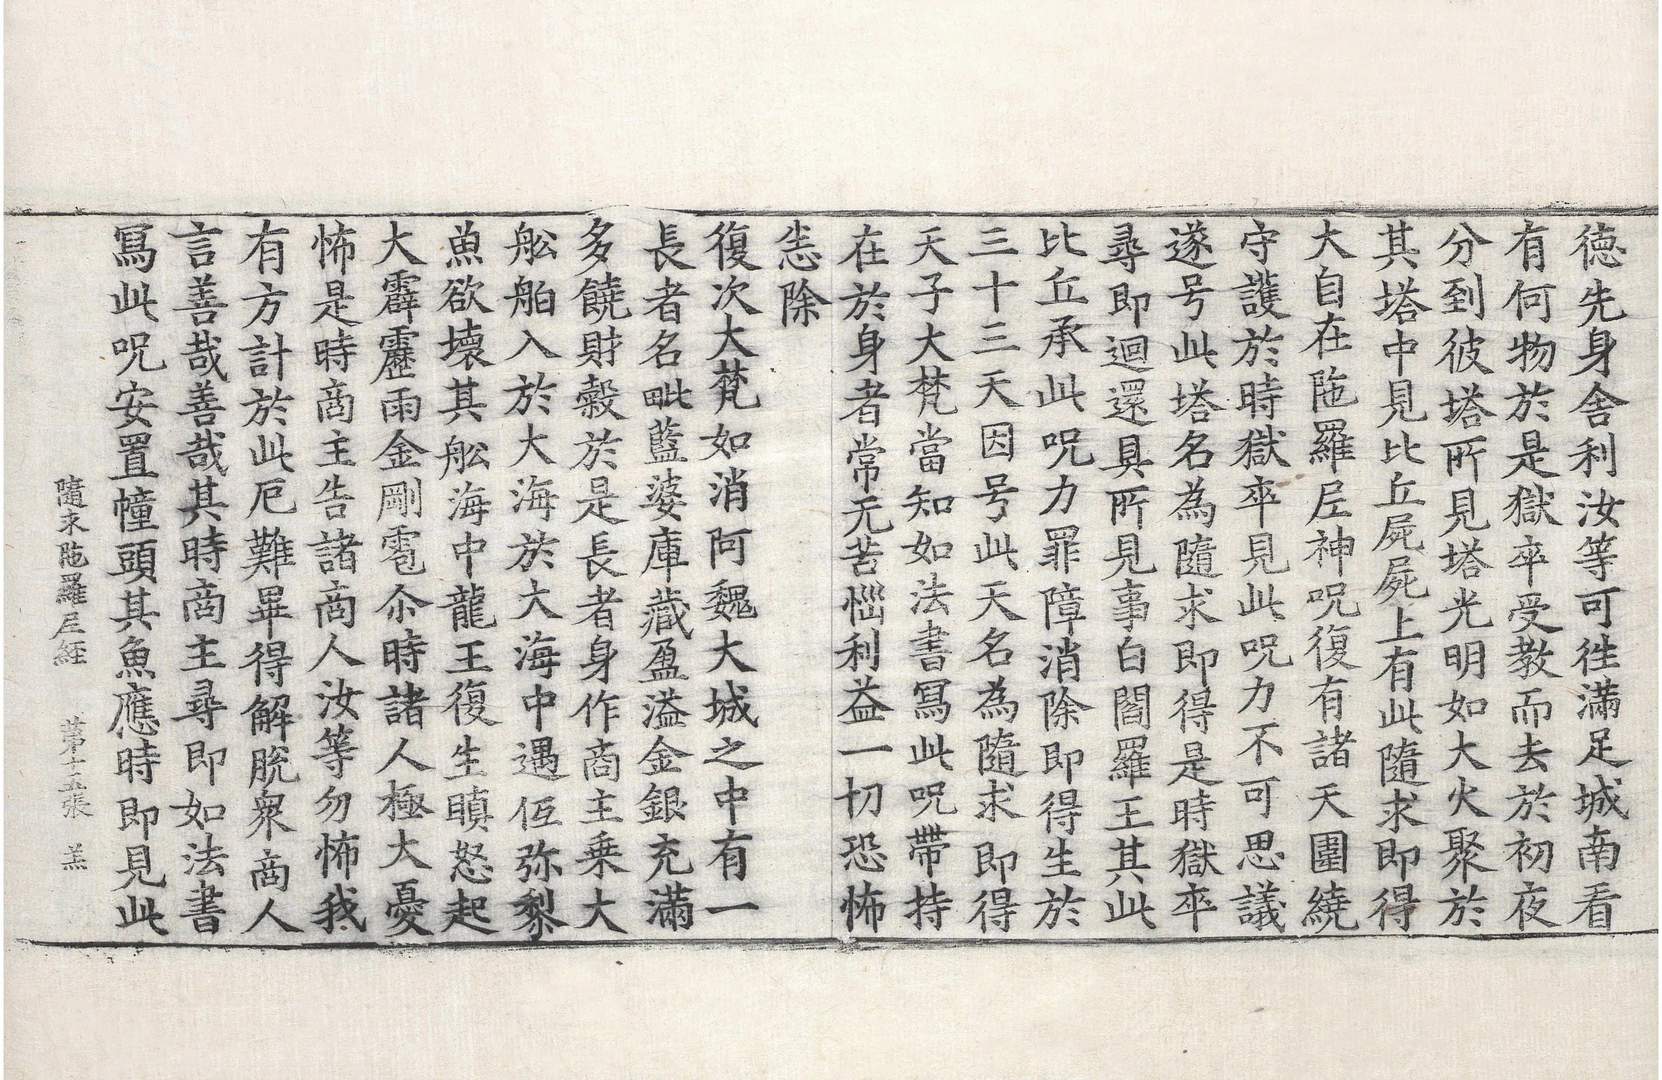 德先身舍利汝等可徃滿足城南看
有何物於是獄卒受教而去於初夜
分到彼塔所見塔光明如大火聚於
其塔中見比丘屍屍上有此隨求即得
大自在陁羅尼神呪復有諸天圍繞
守護於時獄卒見此呪力不可思議
遂号此塔名為隨求即得是時獄卒
尋即迴還具所見事白閻羅王其此
比丘承此呪力罪障消除即得生於
三十三天因号此天名為隨求即得
天子大梵當知如法書冩此呪帶持
在於身者常无苦惱利益一切恐怖
悉除
復次大梵如消阿魏大城之中有一
長者名毗藍婆庫藏盈溢金銀充滿
多饒財糓於是長者身作商主乗大
舩舶入於大海於大海中遇低弥黎
魚欲壞其舩海中龍王復生瞋怒起
大霹靂雨金剛雹尒時諸人極大憂
怖是時商主告諸商人汝等勿怖我
有方計於此厄難畢得解脫衆商人
言善哉善哉其時商主尋即如法書
冩此呪安置幢頭其魚應時即見此
隨求陁羅尼經 第十五張 羔